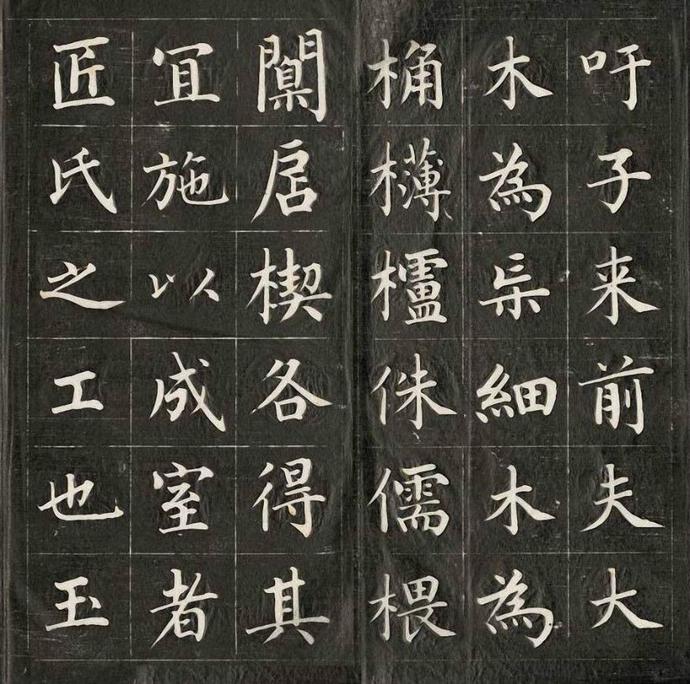 吁子来前夫大
木為杗細木為
桷欂櫨侏儒椳
闑扂楔各得其
冝施以成室者
匠氏之工也玉